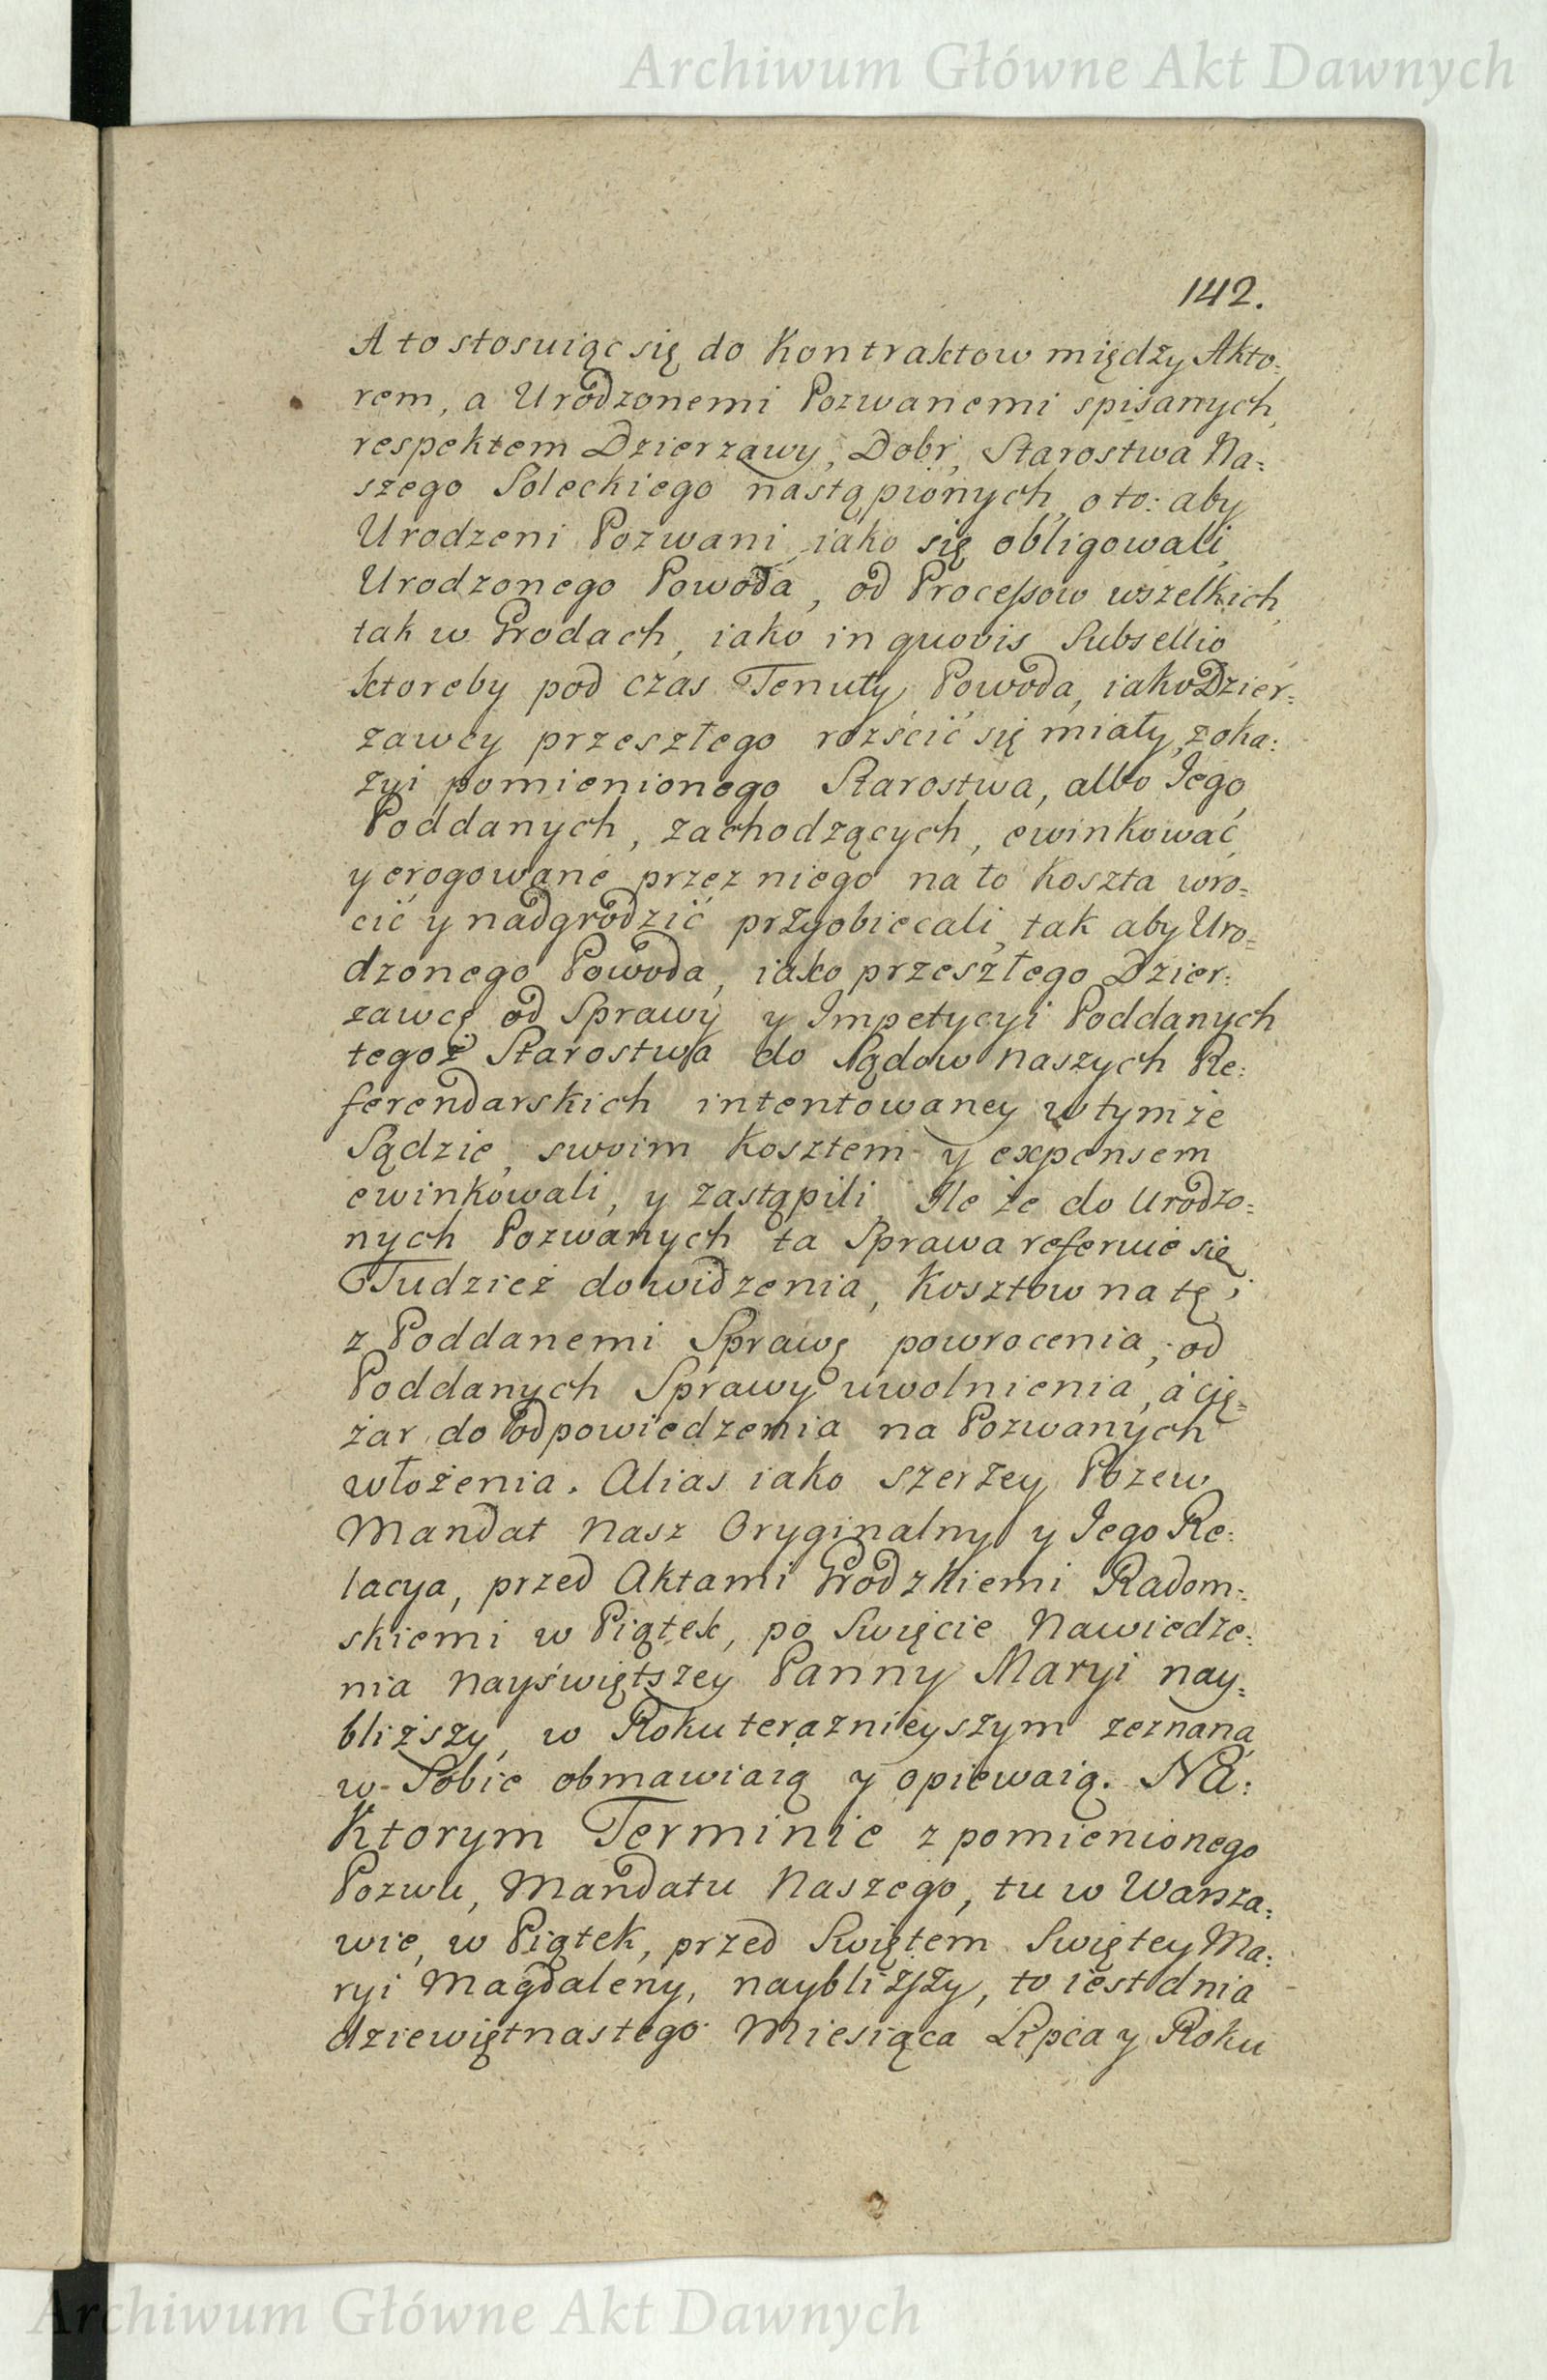 Archiwum Główne Akt Dawnych
142.
A to stosuiąc się do Kontraktow między Akto:
rem, a Urodzonemi Pozwanemi spisanych,
respektem Dzierzawy, Dobr, Starostwa Na=
szego Soleckiego nastąpionych, o to: aby
Urodzeni Pozwani, iako się obligowali,
Urodzonego Powoda, od Processow wszelkich,
tak w Grodach, iako in quovis Subsellio
ktoreby pod czas Tenuty, Powoda, iako Dzier=
zawcy przeszłego rożścić się miały, z oka:
zyi pomienionego Starostwa, albo Jego,
Poddanych, zachodzących, ewinkować,
y erogowane przez niego na to Koszta wro=
cić y nadgrodzić przyobiecali, tak aby Uro=
dzonego Powoda, iako przeszłego Dzier:
zawcę od Sprawy y Impetycyi Poddanych
tegoż Starostwa do Sądow naszych Re:
ferendarskich intentowaney w tymże
Sądzie, swoim Kosztem y expensem
ewinkowali, y zastąpili, Ile że do Urodzo=
nych Pozwanych ta Sprawa referuie się,
Tudzież do widzenia, Kosztow na tę,
z Poddanemi Sprawę powrocenia, od
Poddanych Sprawy uwolnienia, a cię=
żar do Odpowiedzenia na Pozwanych
włożenia. Alias iako szerzey Pozew
Mandat Nasz Oryginalny y Jego Re:
lacya, przed Aktami Grodzkiemi Radom=
skiemi w Piątek, po Swięcie Nawiedze:
nia Nayświętszey Panny Maryi nay=
bliższy, w Roku terazniéyszym zeznana,
w Sobie obmawiaią y opiewaią. Na:
Ktorym Terminie z pomienionego
Pozwu, Mandatu Naszego, tu w Warsza=
wie, w Piątek, przed Swiętem Swiętey Ma:
ryi Magdaleny, naybliższy, to iest dnia
dziewiętnastego Miesiąca Lipca y Roku
Archiwum Główne Akt Dawnych